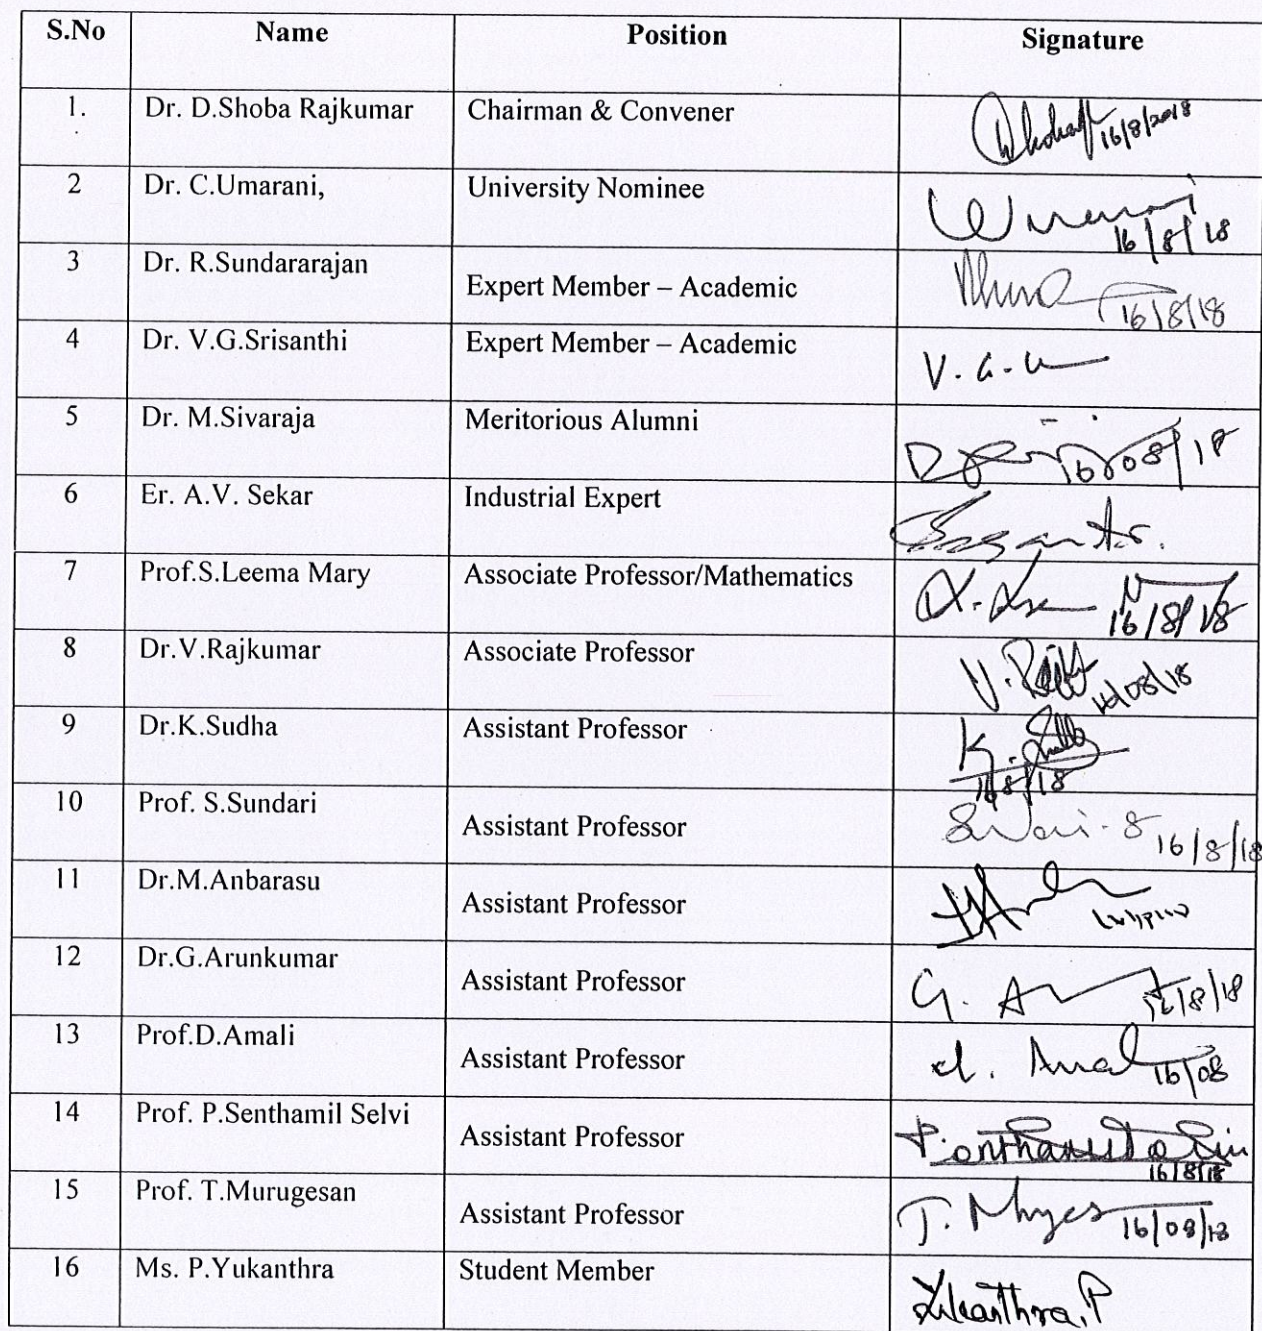 S.No Name Position Signature
1. Dr. D.Shoba Rajkumar Chairman & Convener 16/8/2018
2 Dr. C.Umarani, University Nominee 16/8/18
3 Dr. R.Sundararajan Expert Member – Academic 16/8/18
4 Dr. V.G.Srisanthi Expert Member – Academic V.G.
5 Dr. M.Sivaraja Meritorious Alumni 16/08/18
6 Er. A.V. Sekar Industrial Expert
7 Prof.S.Leema Mary Associate Professor/Mathematics 16/8/18
8 Dr.V.Rajkumar Associate Professor V. 16/08/18
9 Dr.K.Sudha Assistant Professor K. 16/8/18
10 Prof. S.Sundari Assistant Professor 16/8/18
11 Dr.M.Anbarasu Assistant Professor
12 Dr.G.Arunkumar Assistant Professor G. 16/8/18
13 Prof.D.Amali Assistant Professor d. 16/08
14 Prof. P.Senthamil Selvi Assistant Professor 16/8/18
15 Prof. T.Murugesan Assistant Professor T. 16/08/18
16 Ms. P.Yukanthra Student Member Yukanthra.P